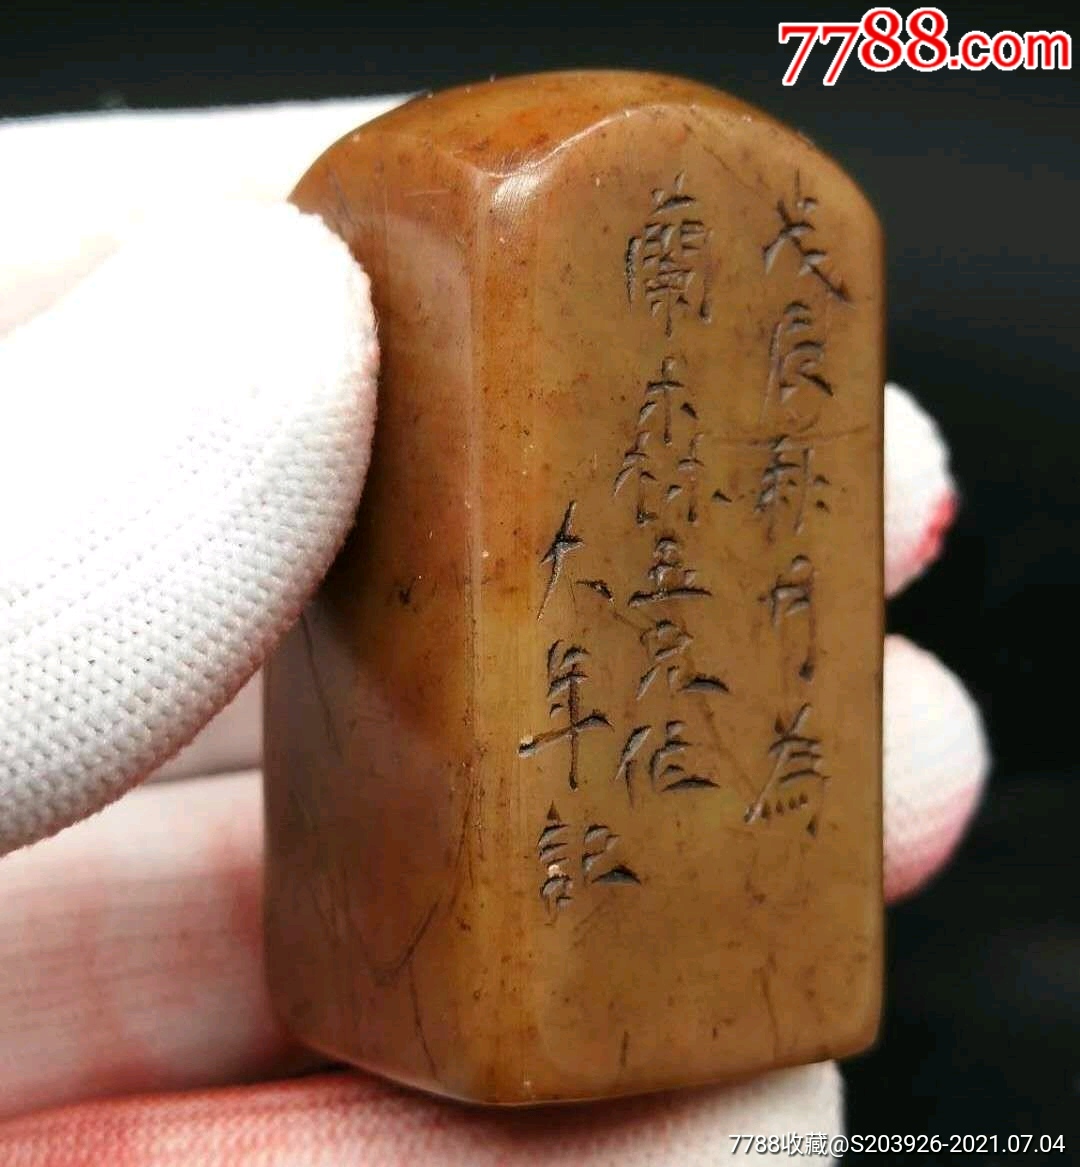 7788.com
戊辰秋月為
蘭森五兄作
大年記
7788收藏@S203926-2021.07.04